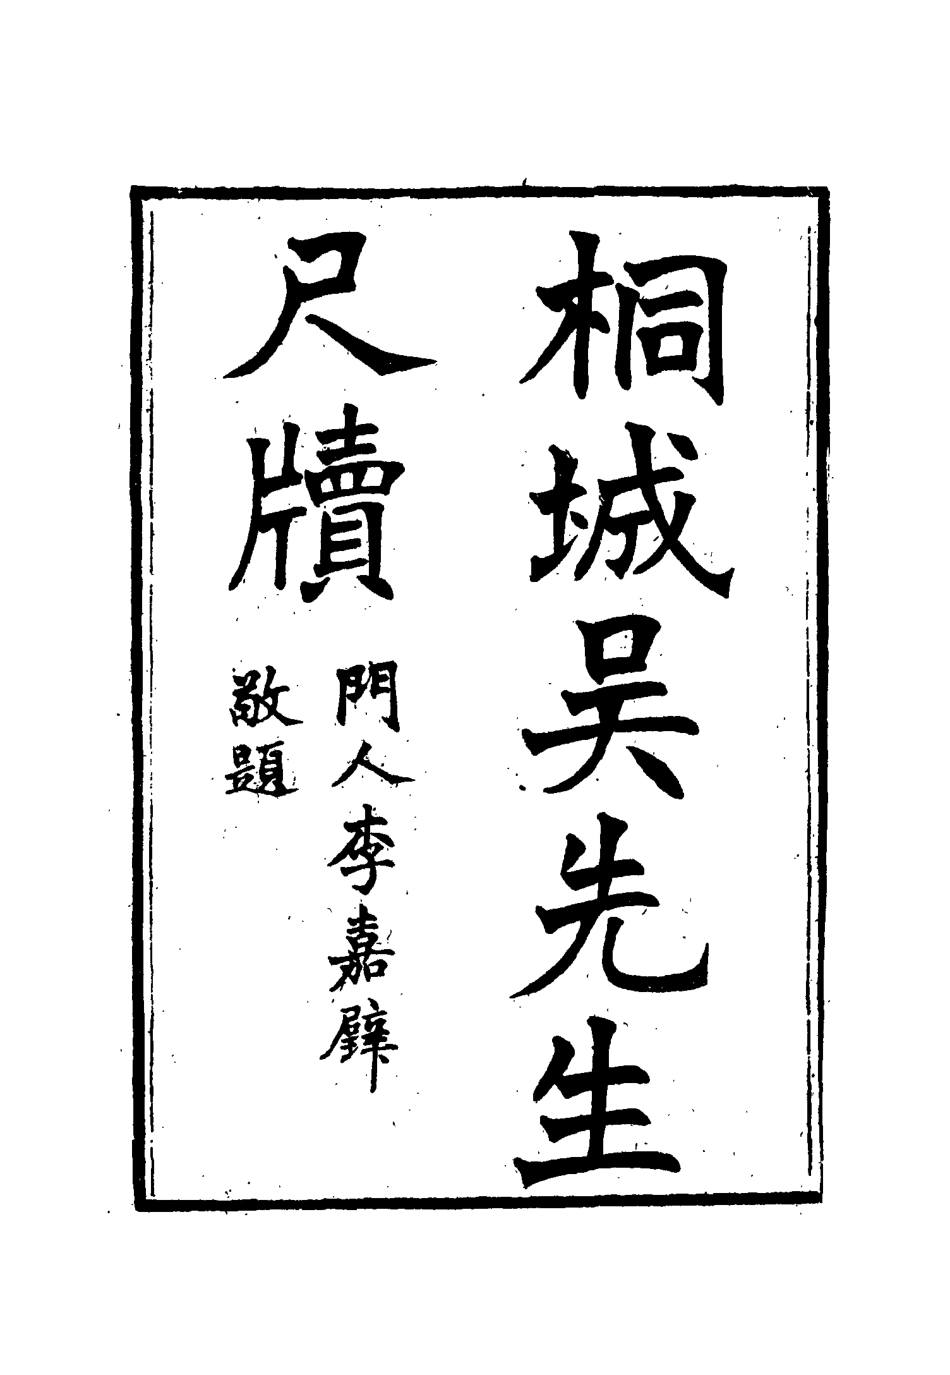 桐城吴先生
尺牘
門人李嘉璧
敬題